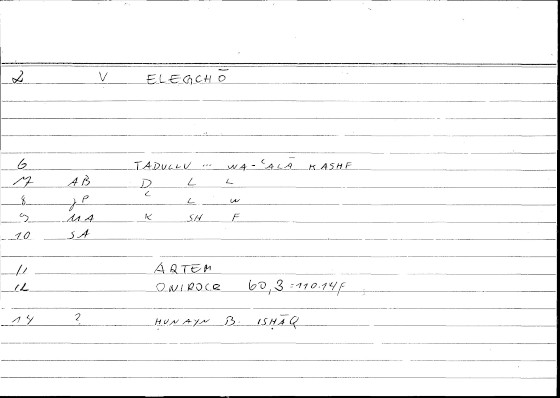 2 V ELEGCHŌ
6 TADULLU ... WA-ʿALĀ KASHF
7 AB D L L
8 JP ʿ L W
9 MA K SH F
10 SA
11 ARTEM
12 ONIROCR 60,3=110.14F
14 ? ḤUNAYN B. ISḤĀQ